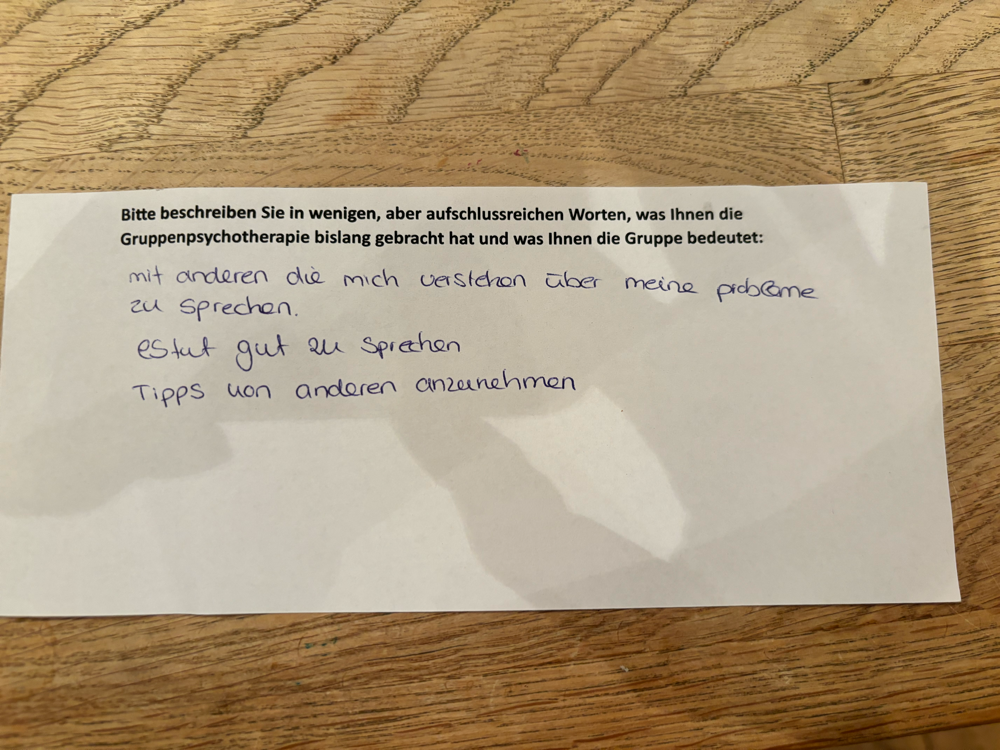 Bitte beschreiben Sie in wenigen, aber aufschlussreichen Worten, was Ihnen die
Gruppenpsychotherapie bislang gebracht hat und was Ihnen die Gruppe bedeutet:
mit anderen die mich verstehen über meine probleme
zu sprechen.
es tut gut zu sprechen
Tipps von anderen anzunehmen